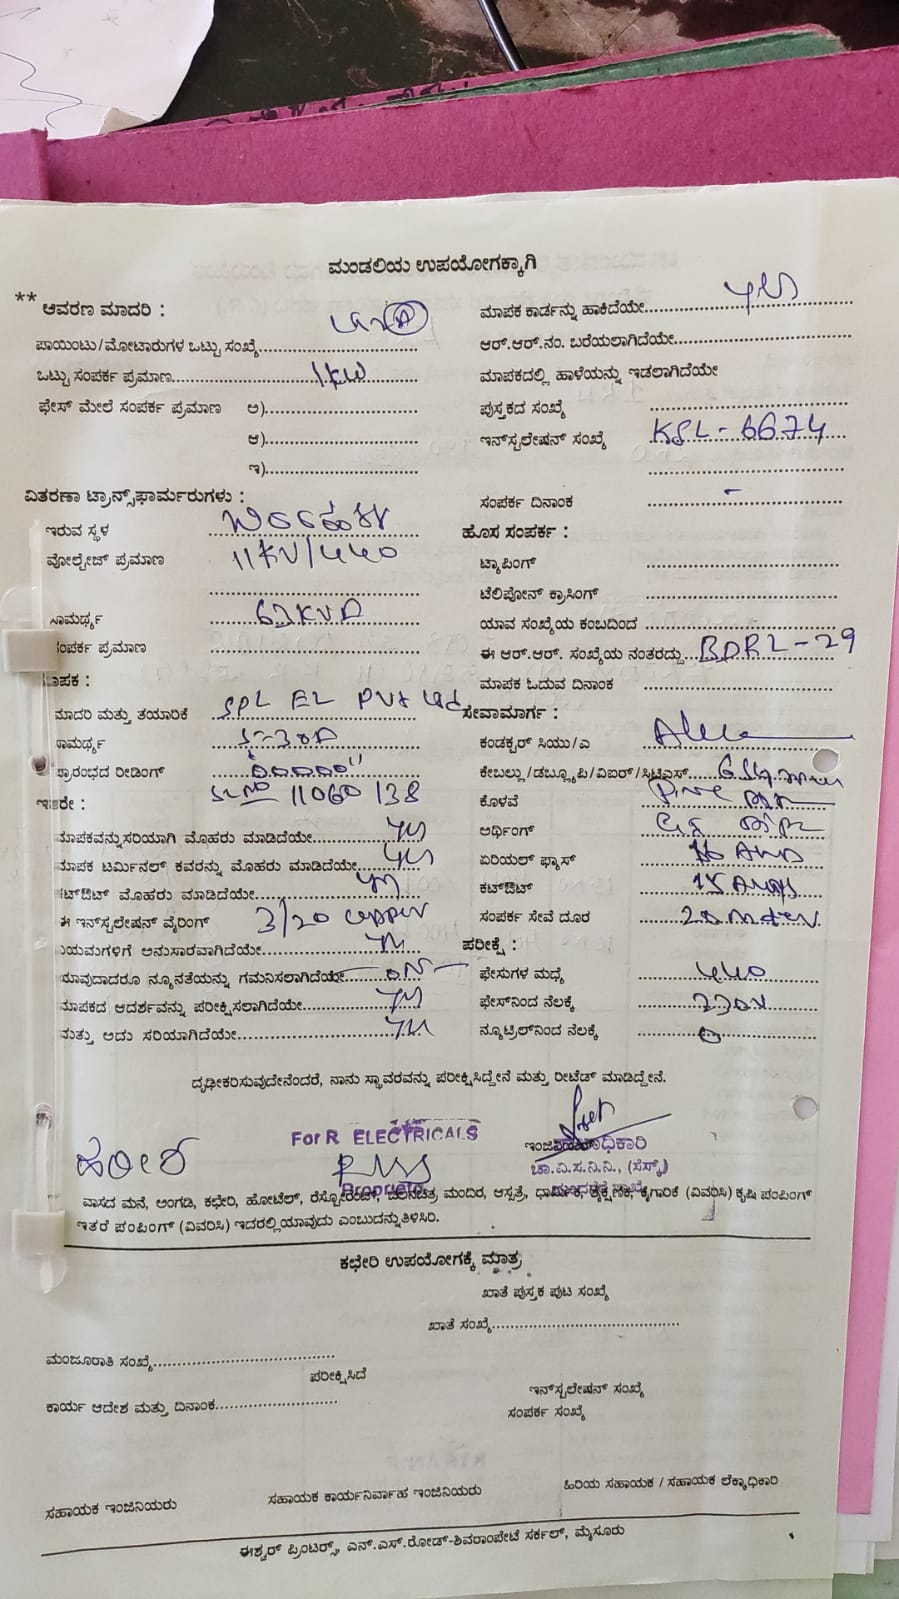 ಮಂಡಲಿಯ ಉಪಯೋಗಕ್ಕಾಗಿ
** ಆವರಣ ಮಾದರಿ :
ಮಾಪಕ ಕಾರ್ಡನ್ನು ಹಾಕಿದೆಯೇ.......... yes
ಪಾಯಿಂಟು/ಮೋಟಾರುಗಳ ಒಟ್ಟು ಸಂಖ್ಯೆ..........
ಆರ್.ಆರ್.ನಂ. ಬರೆಯಲಾಗಿದೆಯೇ..........
ಒಟ್ಟು ಸಂಪರ್ಕ ಪ್ರಮಾಣ.......... 1KW
ಮಾಪಕದಲ್ಲಿ ಹಾಳೆಯನ್ನು ಇಡಲಾಗಿದೆಯೇ
ಫೇಸ್ ಮೇಲೆ ಸಂಪರ್ಕ ಪ್ರಮಾಣ ಅ)..........
ಪುಸ್ತಕದ ಸಂಖ್ಯೆ ..........
ಆ)..........
ಇನ್‌ಸ್ಟಲೇಷನ್ ಸಂಖ್ಯೆ KSL-6674
ಇ)..........
ವಿತರಣಾ ಟ್ರಾನ್ಸ್‌ಫಾರ್ಮರುಗಳು :
ಸಂಪರ್ಕ ದಿನಾಂಕ -
ಇರುವ ಸ್ಥಳ
ಹೊಸ ಸಂಪರ್ಕ :
ವೋಲ್ಟೇಜ್ ಪ್ರಮಾಣ 11KV/440
ಟ್ಯಾಪಿಂಗ್ ..........
ಟೆಲಿಫೋನ್ ಕ್ರಾಸಿಂಗ್ ..........
ಸಾಮರ್ಥ್ಯ 63KVA
ಯಾವ ಸಂಖ್ಯೆಯ ಕಂಬದಿಂದ ..........
ಸಂಪರ್ಕ ಪ್ರಮಾಣ ..........
ಈ ಆರ್.ಆರ್. ಸಂಖ್ಯೆಯ ನಂತರದ್ದು... BDRL-29
ಮಾಪಕ :
ಮಾಪಕ ಓದುವ ದಿನಾಂಕ ..........
ಮಾದರಿ ಮತ್ತು ತಯಾರಿಕೆ SPL EL Pvt Ltd
ಸೇವಾಮಾರ್ಗ :
ಸಾಮರ್ಥ್ಯ 5-30A
ಕಂಡಕ್ಟರ್ ಸಿಯು/ಎ
ಪ್ರಾರಂಭದ ರೀಡಿಂಗ್
ಕೇಬಲ್ಲು/ಡಬ್ಲ್ಯೂಪಿ/ವಿಐರ್/ಸಿಟಿಎಸ್...
ಇತರೇ : SL NO 11060138
ಕೊಳವೆ
ಮಾಪಕವನ್ನು ಸರಿಯಾಗಿ ಮೊಹರು ಮಾಡಿದೆಯೇ.......... yes
ಅರ್ಥಿಂಗ್
ಮಾಪಕ ಟರ್ಮಿನಲ್ ಕವರನ್ನು ಮೊಹರು ಮಾಡಿದೆಯೇ.......... yes
ಏರಿಯಲ್ ಫ್ಯೂಸ್ 16 Amp
ಕಟ್‌ಔಟ್ ಮೊಹರು ಮಾಡಿದೆಯೇ.......... yes
ಕಟ್‌ಔಟ್ 15 Amps
ಈ ಇನ್‌ಸ್ಟಲೇಷನ್ ವೈರಿಂಗ್ 3/20 copper
ಸಂಪರ್ಕ ಸೇವೆ ದೂರ 20 meter
ನಿಯಮಗಳಿಗೆ ಅನುಸಾರವಾಗಿದೆಯೇ.......... yes
ಪರೀಕ್ಷೆ :
ಯಾವುದಾದರೂ ನ್ಯೂನತೆಯನ್ನು ಗಮನಿಸಲಾಗಿದೆಯೇ..........
ಫೇಸುಗಳ ಮಧ್ಯೆ 440
ಮಾಪಕದ ಆದರ್ಶವನ್ನು ಪರೀಕ್ಷಿಸಲಾಗಿದೆಯೇ.......... yes
ಫೇಸ್‌ನಿಂದ ನೆಲಕ್ಕೆ 230V
ಮತ್ತು ಅದು ಸರಿಯಾಗಿದೆಯೇ.......... yes
ನ್ಯೂಟ್ರಿಲ್‌ನಿಂದ ನೆಲಕ್ಕೆ 0
ದೃಢೀಕರಿಸುವುದೇನೆಂದರೆ, ನಾನು ಸ್ಥಾವರವನ್ನು ಪರೀಕ್ಷಿಸಿದ್ದೇನೆ ಮತ್ತು ರೀಟೆಡ್ ಮಾಡಿದ್ದೇನೆ.
For R ELECTRICALS
ಚಾ.ವಿ.ಸ.ನಿ.ನಿ., (ಸೆಸ್ಕ್)
Proprietor
ವಾಸದ ಮನೆ, ಅಂಗಡಿ, ಕಛೇರಿ, ಹೋಟೆಲ್, ರೆಸ್ಟೋರೆಂಟ್, ಚಲನಚಿತ್ರ ಮಂದಿರ, ಆಸ್ಪತ್ರೆ, ಧಾರ್ಮಿಕ, ಶೈಕ್ಷಣಿಕ, ಕೈಗಾರಿಕೆ (ವಿವರಿಸಿ) ಕೃಷಿ ಪಂಪಿಂಗ್
ಇತರೆ ಪಂಪಿಂಗ್ (ವಿವರಿಸಿ) ಇದರಲ್ಲಿ ಯಾವುದು ಎಂಬುದನ್ನು ತಿಳಿಸಿರಿ.
ಕಛೇರಿ ಉಪಯೋಗಕ್ಕೆ ಮಾತ್ರ
ಖಾತೆ ಪುಸ್ತಕ ಪುಟ ಸಂಖ್ಯೆ
ಖಾತೆ ಸಂಖ್ಯೆ..........
ಮಂಜೂರಾತಿ ಸಂಖ್ಯೆ..........
ಪರೀಕ್ಷಿಸಿದೆ
ಇನ್‌ಸ್ಟಲೇಷನ್ ಸಂಖ್ಯೆ
ಕಾರ್ಯ ಆದೇಶ ಮತ್ತು ದಿನಾಂಕ..........
ಸಂಪರ್ಕ ಸಂಖ್ಯೆ
ಸಹಾಯಕ ಇಂಜಿನಿಯರು
ಸಹಾಯಕ ಕಾರ್ಯನಿರ್ವಾಹ ಇಂಜಿನಿಯರು
ಹಿರಿಯ ಸಹಾಯಕ / ಸಹಾಯಕ ಲೆಕ್ಕಾಧಿಕಾರಿ
ಈಶ್ವರ್ ಪ್ರಿಂಟರ್ಸ್, ಎನ್.ಎಸ್.ರೋಡ್-ಶಿವರಾಂಪೇಟೆ ಸರ್ಕಲ್, ಮೈಸೂರು